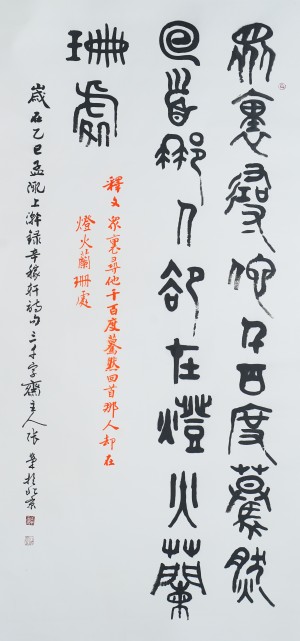 眾裏尋他千百度驀然
回首那人卻在燈火蘭
珊處
釋文 眾裏尋他千百度驀然回首那人却在
燈火蘭珊處
歲在乙巳孟陬上澣録辛稼軒詞句三千字齋主人張於北京